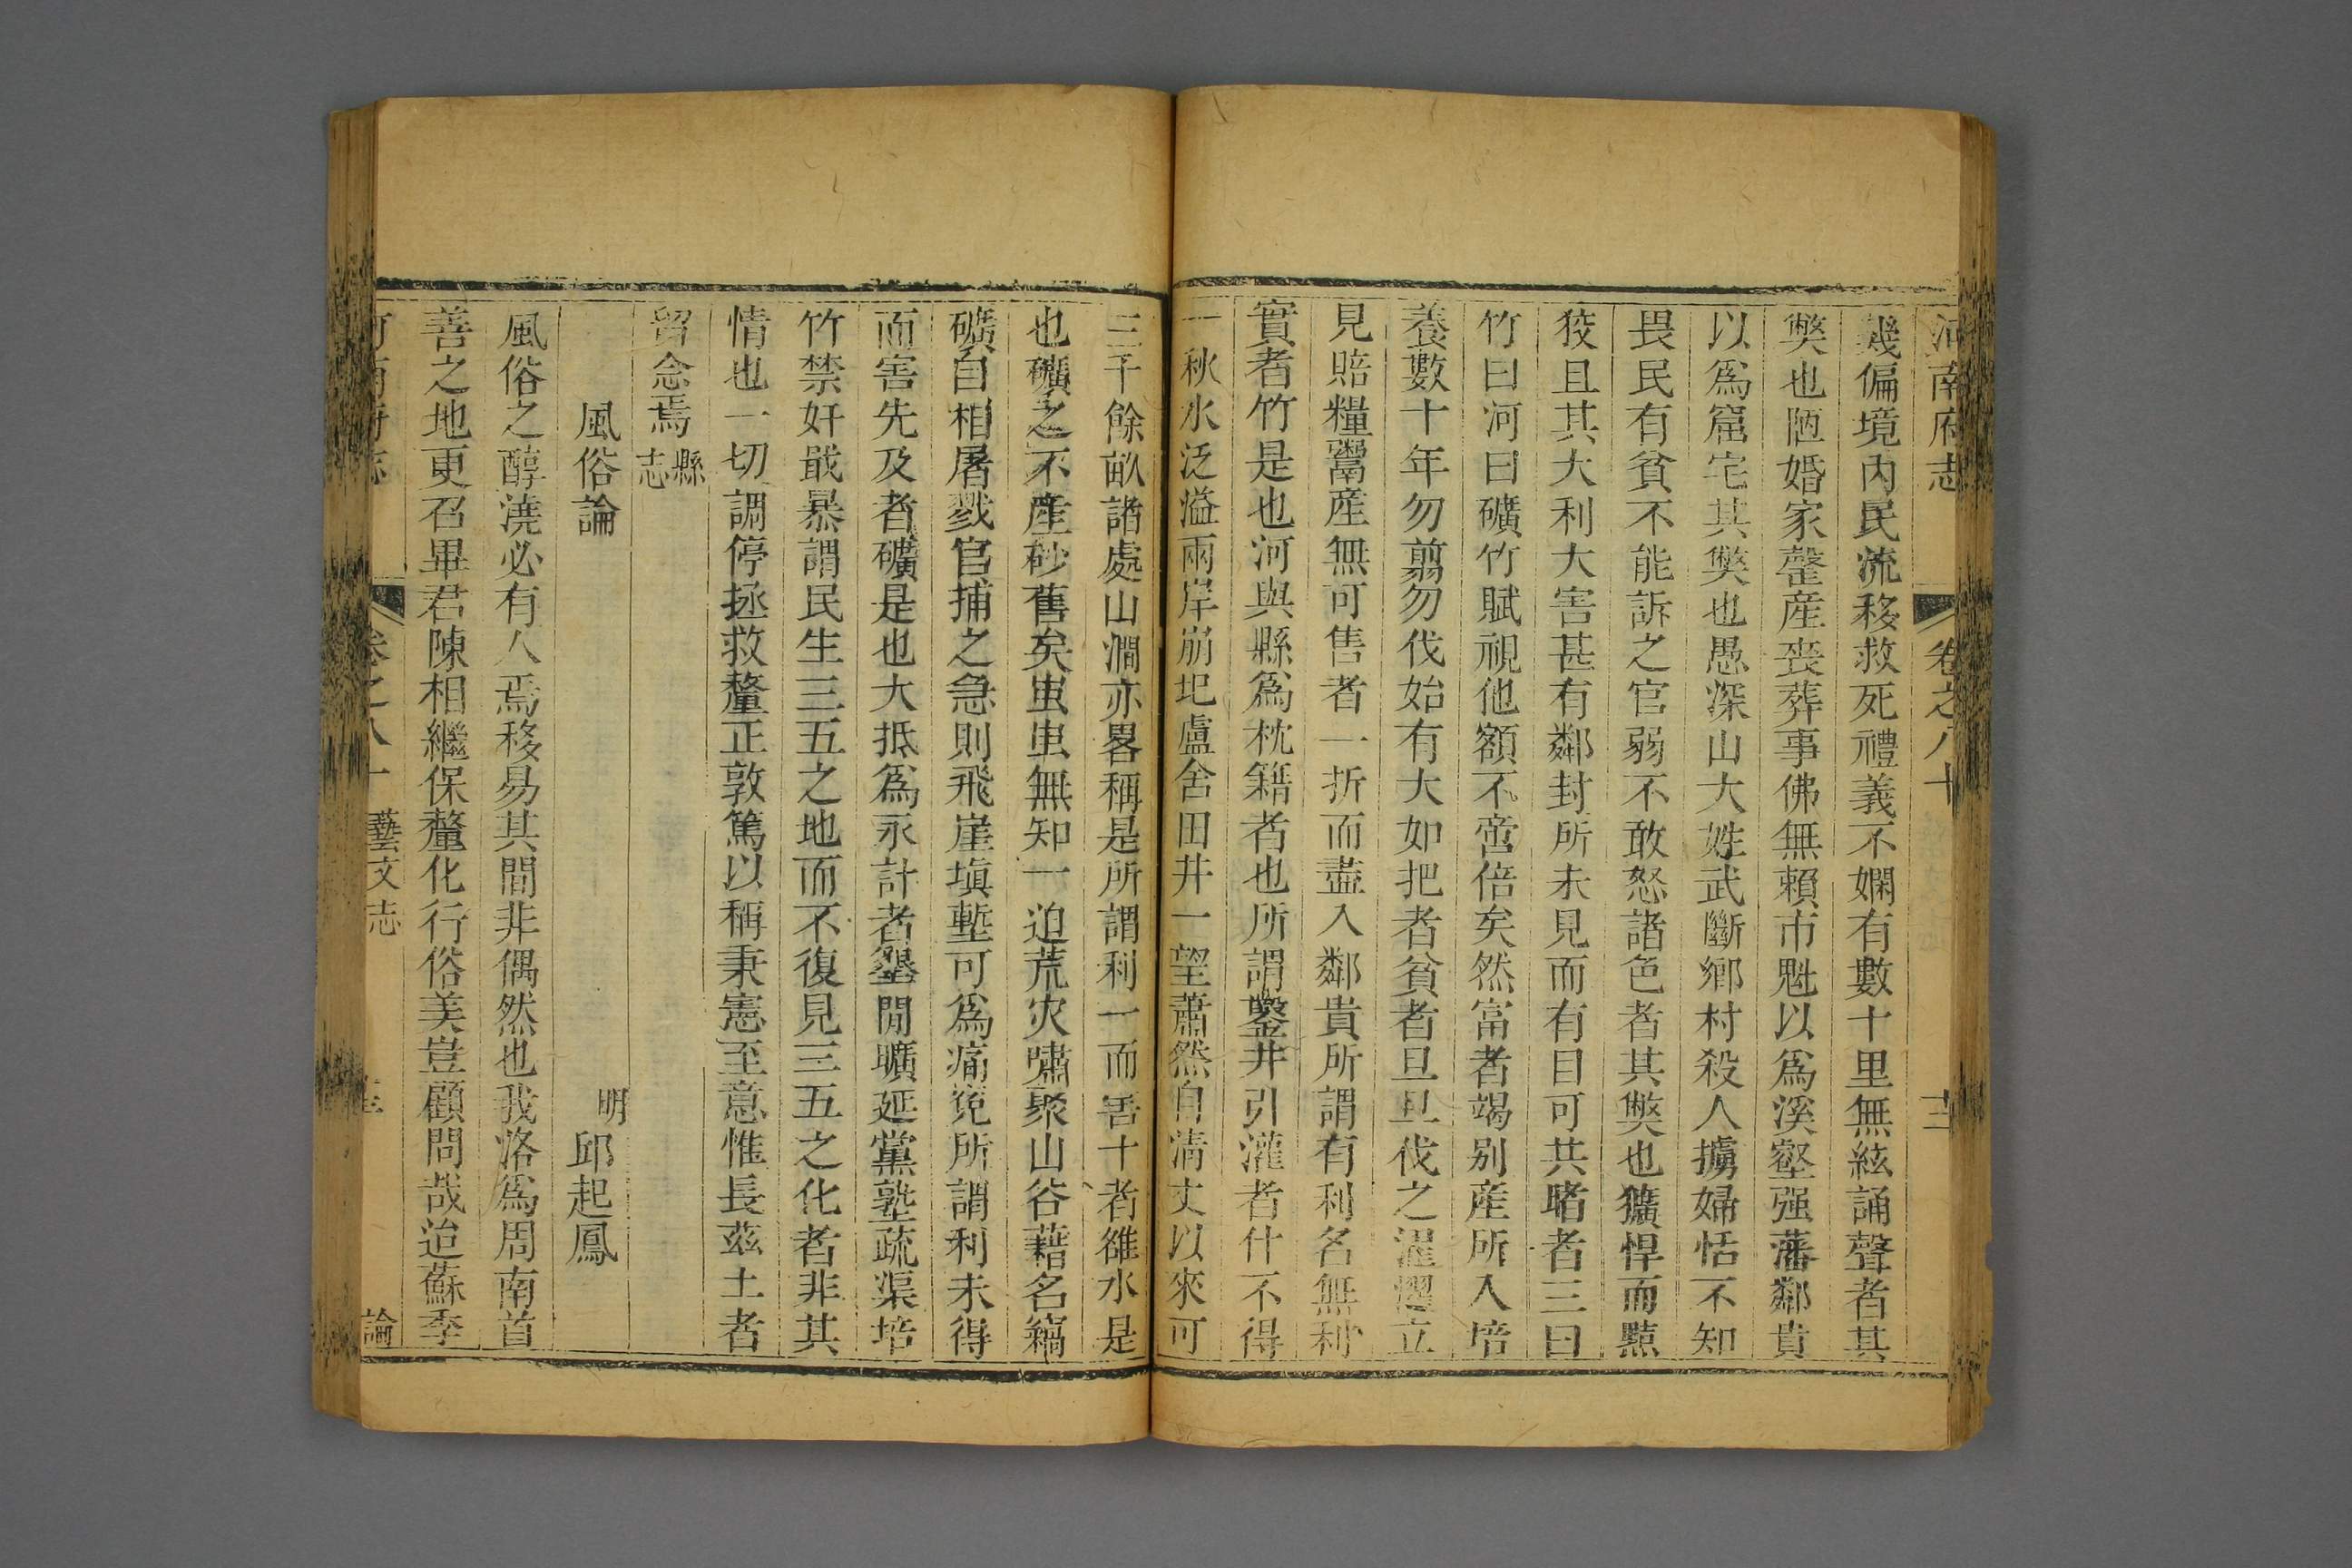 河南府志 卷之八十 十三
幾偏境內民流移救死禮義不嫻有數十里無絃誦聲者其
獘也陋婚家罄產喪葬事佛無賴市魁以爲溪壑强藩鄰貴
以爲窟宅其獘也愚深山大姓武斷鄉村殺人擄婦恬不知
畏民有貧不能訴之官弱不敢怒諸色者其獘也獷悍而黠
狡且其大利大害甚有鄰封所未見而有目可共睹者三曰
竹曰河曰礦竹賦視他額不啻倍矣然富者竭别產所入培
養數十年勿翦勿伐始有大如把者貧者旦旦伐之濯濯立
見賠糧鬻產無可售者一折而盡入鄰貴所謂有利名無利
實者竹是也河與縣爲枕籍者也所謂鑿井引灌者什不得
一秋水泛溢兩岸崩圮盧舍田井一望蕭然自清丈以來可
三千餘畝諸處山澗亦畧稱是所謂利一而害十者雒水是
也礦之不產砂舊矣蚩蚩無知一迫荒灾嘯聚山谷藉名竊
礦自相屠戮官捕之急則飛崖塡塹可爲痛寃所謂利未得
而害先及者礦是也大抵爲永計者墾閒曠延黨塾疏渠培
竹禁奸戢暴謂民生三五之地而不復見三五之化者非其
情也一切調停拯救釐正敦篤以稱秉憲至意惟長茲土者
留念焉 縣志
風俗論
明 邱起鳳
風俗之醇澆必有人焉移易其間非偶然也我洛爲周南首
善之地更召畢君陳相繼保釐化行俗美豈顧問哉迨蘇季
河南府志 卷之八十 藝文志 論